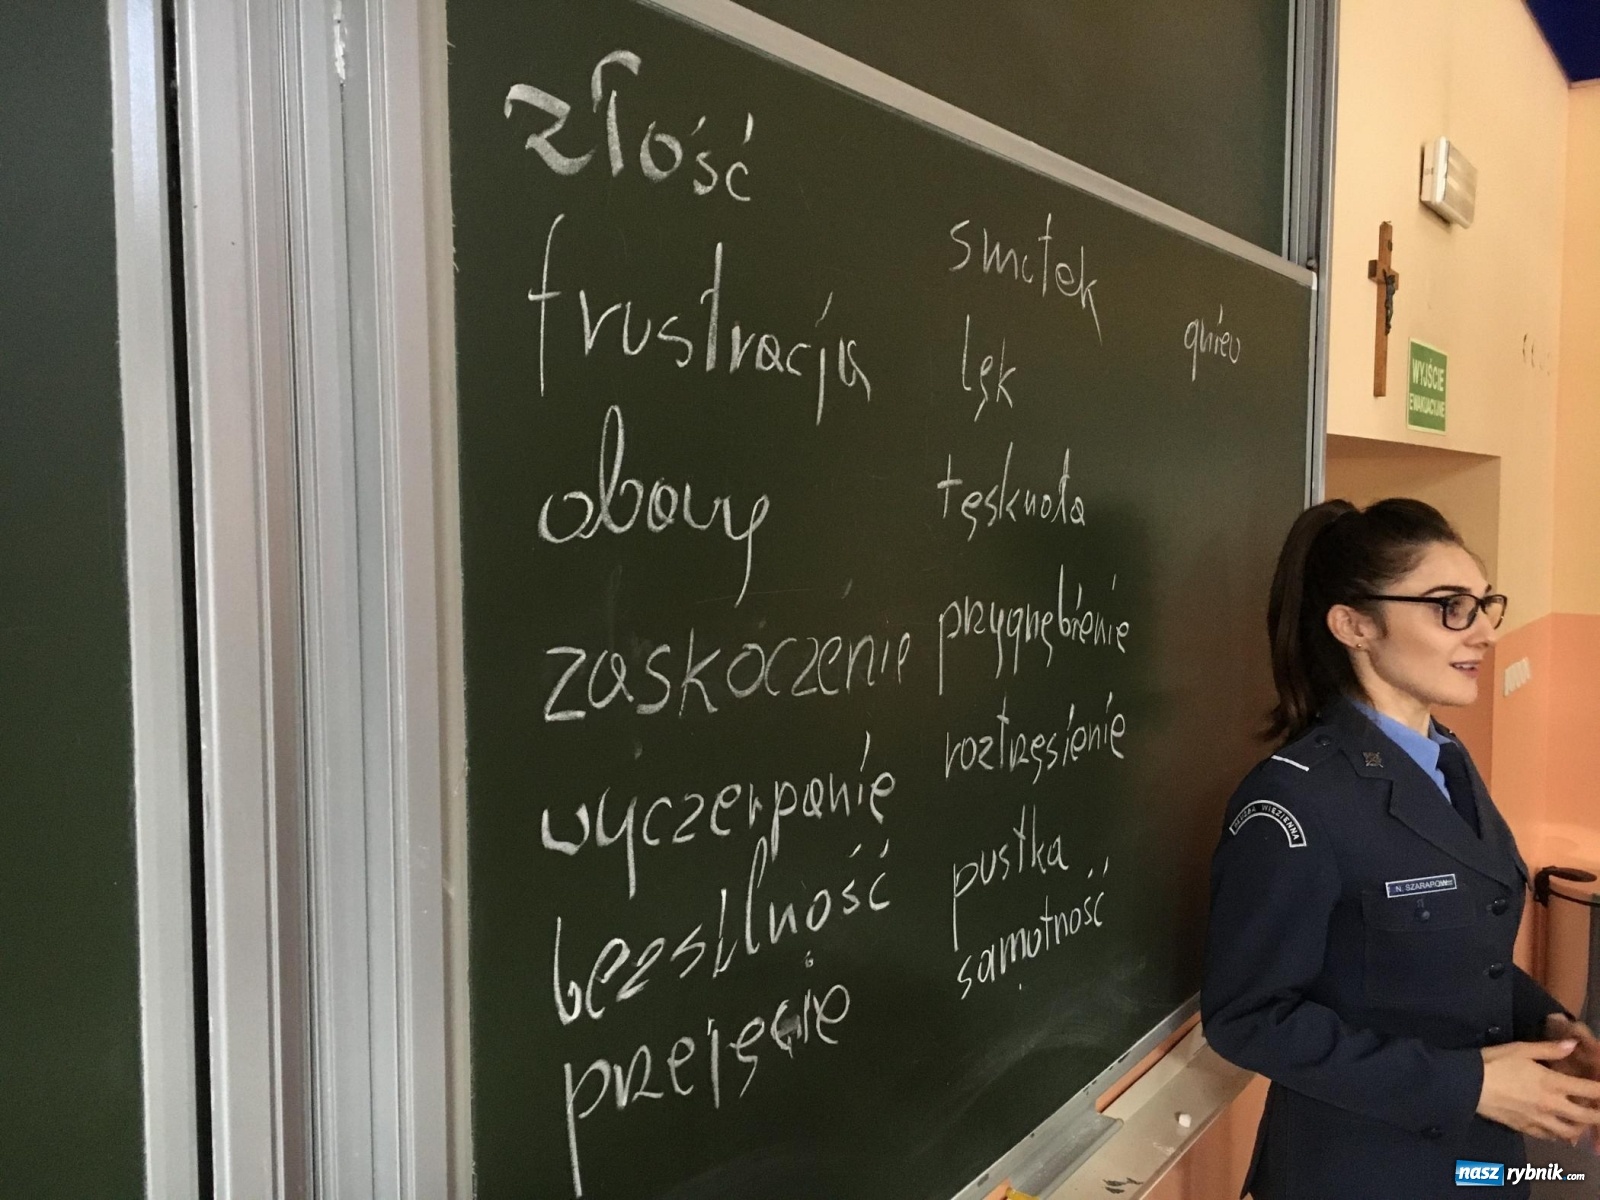 złość
frustracja
obawy
zaskoczenie
wyczerpanie
bezsilność
przejęcie
smutek
lęk
tęsknota
przygnębienie
roztrzęsienie
pustka
samotność
gniew
WYJŚCIE
EWAKUACYJNE
SŁUŻBA WIĘZIENNA
nasz rybnik.com